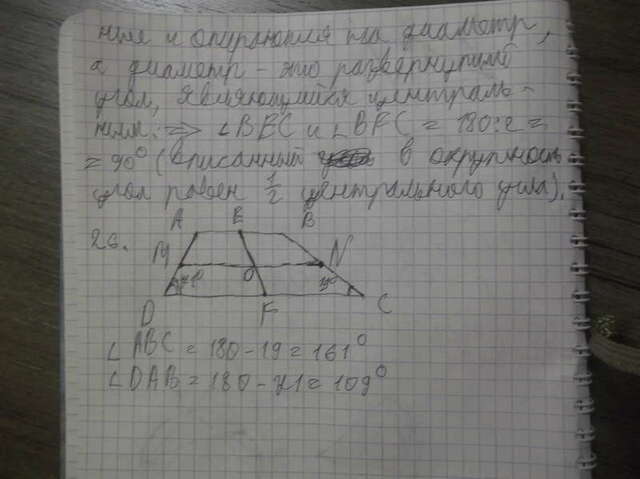 ние и опираются на диаметр,
а диаметр - это развернутый
угол, являющийся централь-
ным. => ∠BEC и ∠BFC = 180:2 =
= 90° (вписанный в окружность
угол равен 1/2 центрального угла).
26.
A E B
M O N
71° 19°
D F C
∠ABC = 180 - 19 = 161°
∠DAB = 180 - 71 = 109°